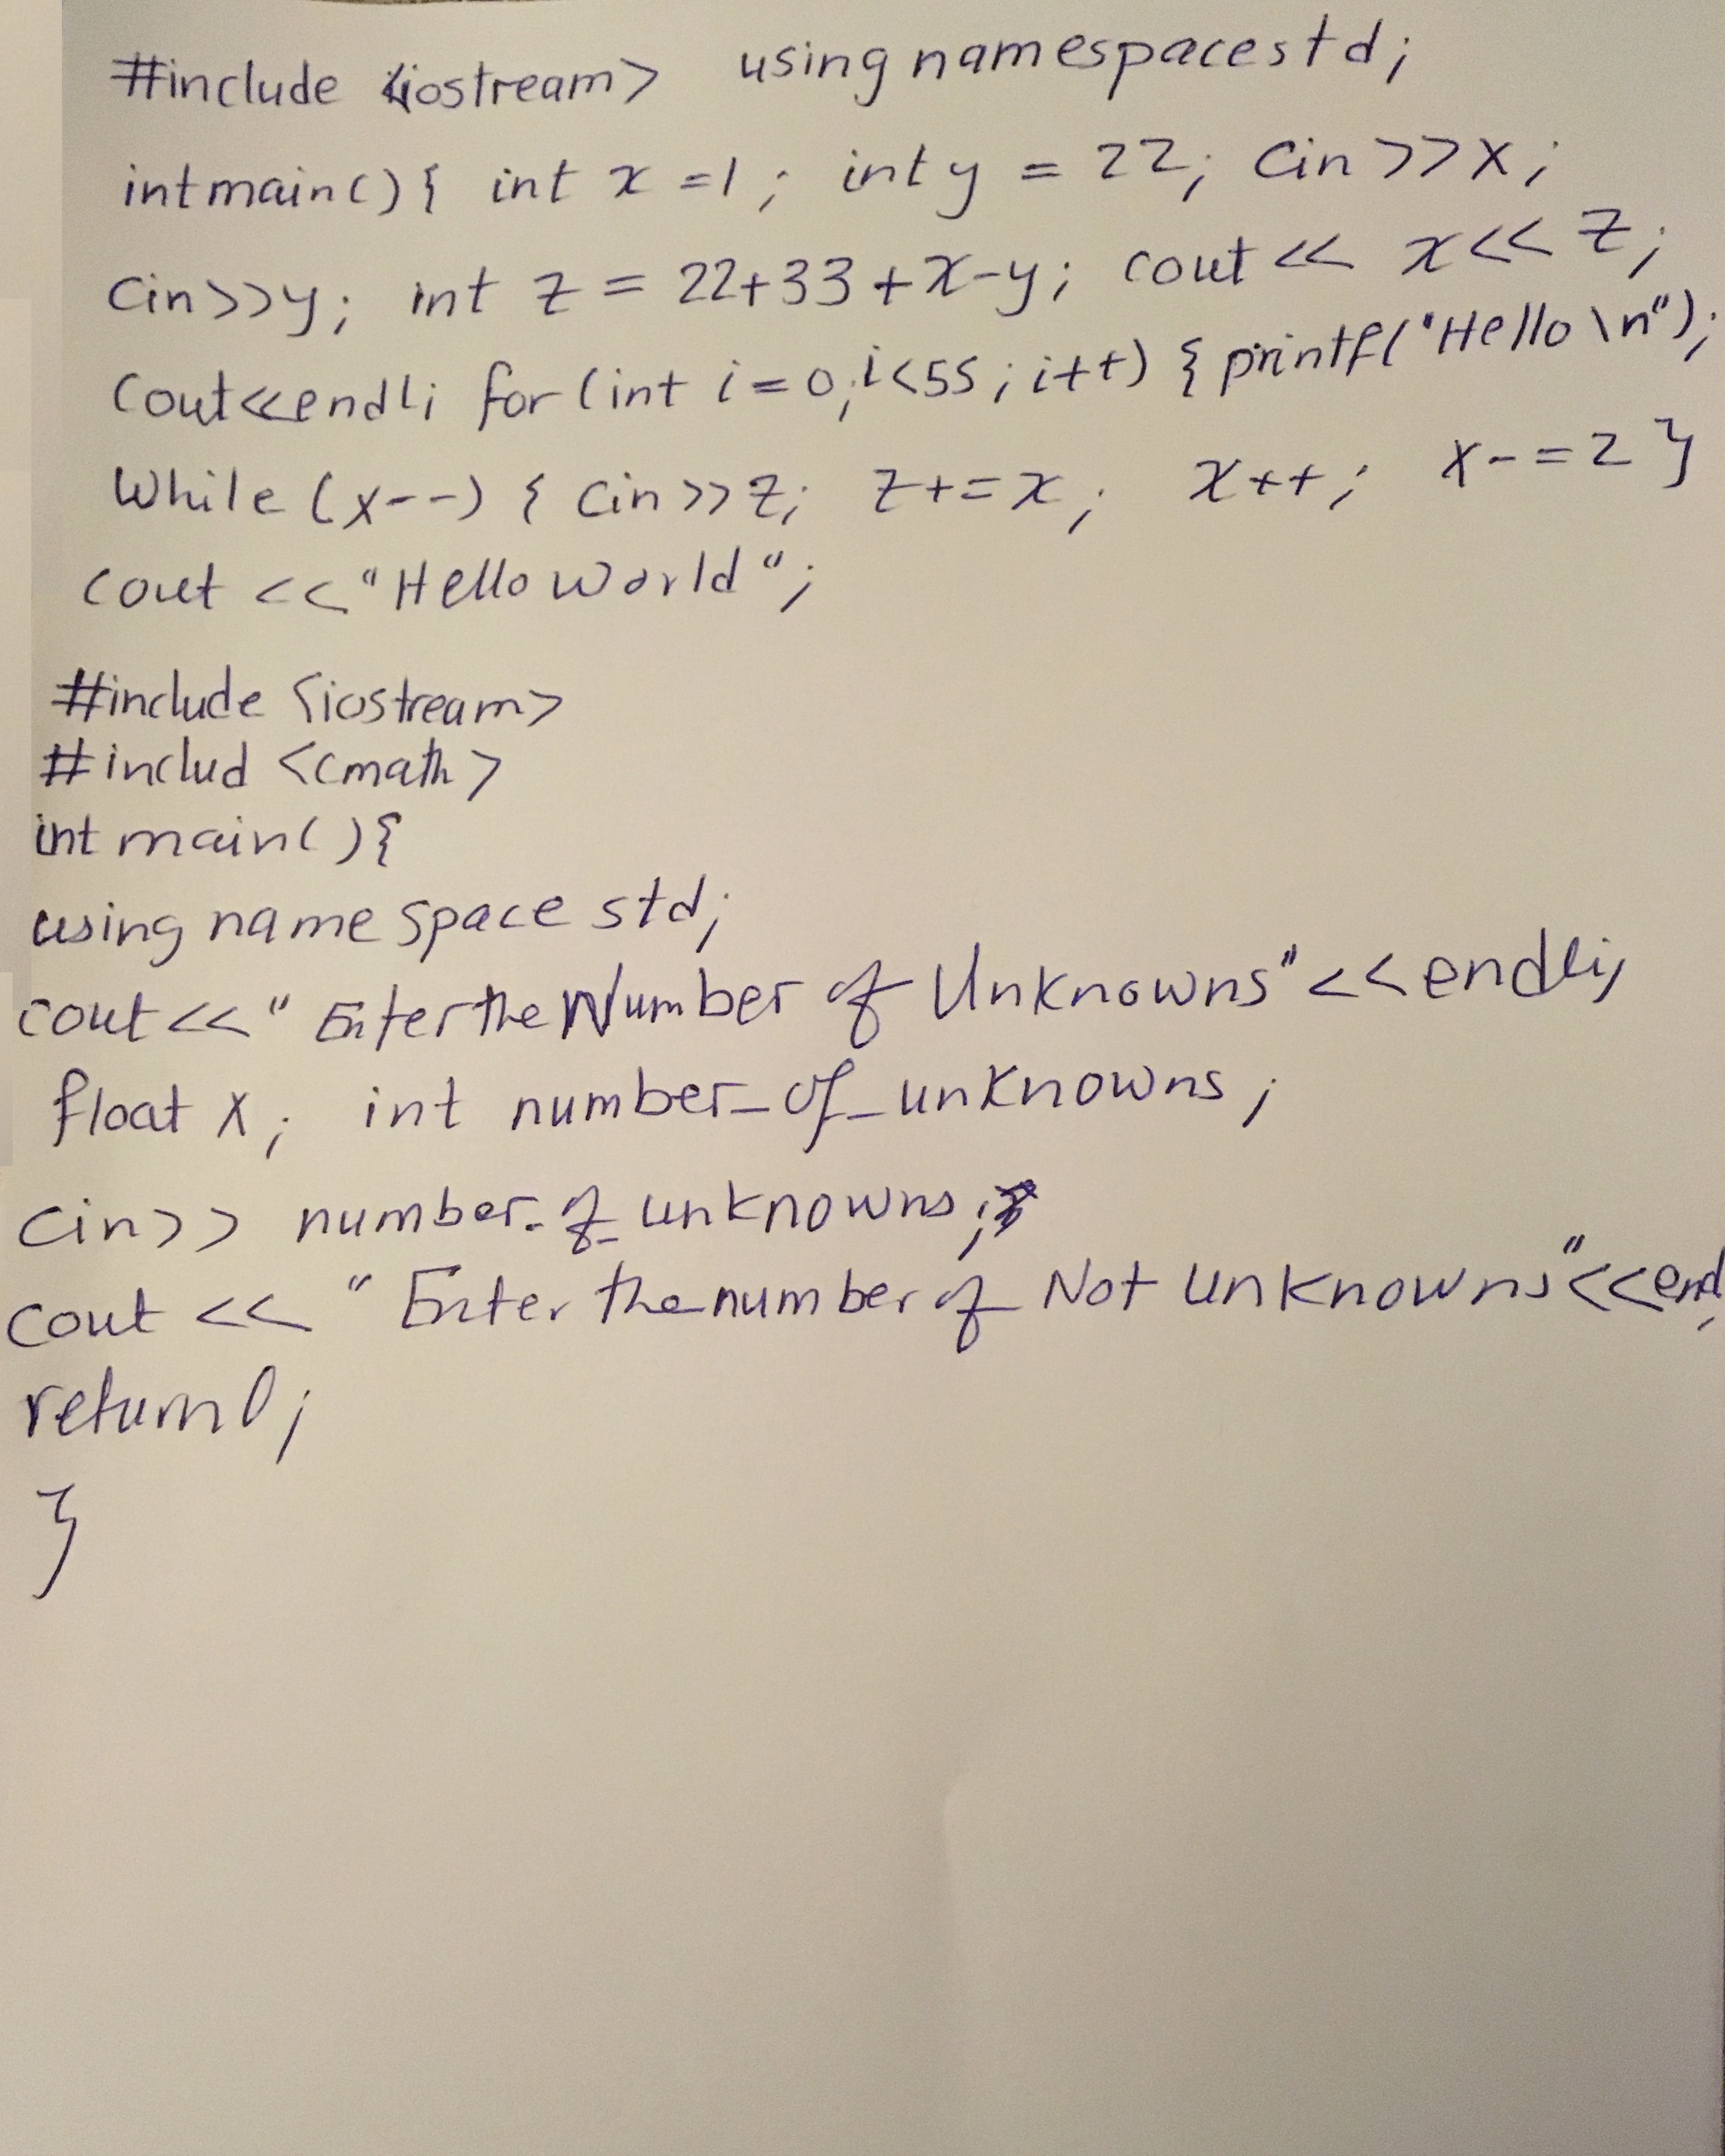 #include <iostream> using namespace std;
int main() { int x = 1; int y = 22; cin >> x;
cin >> y; int z = 22+33+x-y; cout << x << z;
cout << endl; for (int i = 0; i<55; i++) { printf("Hello \n");
While (x--) { cin >> z; z += x; x++; x -= 2 }
cout << "Hello World";
#include <iostream>
#includ <cmath>
int main() {
using name space std;
cout << "Enter the Number of Unknowns" << endl;
float x; int number_of_unknowns;
cin >> number_of_unknowns;
cout << "Enter the number of Not Unknowns" << endl
return 0;
}